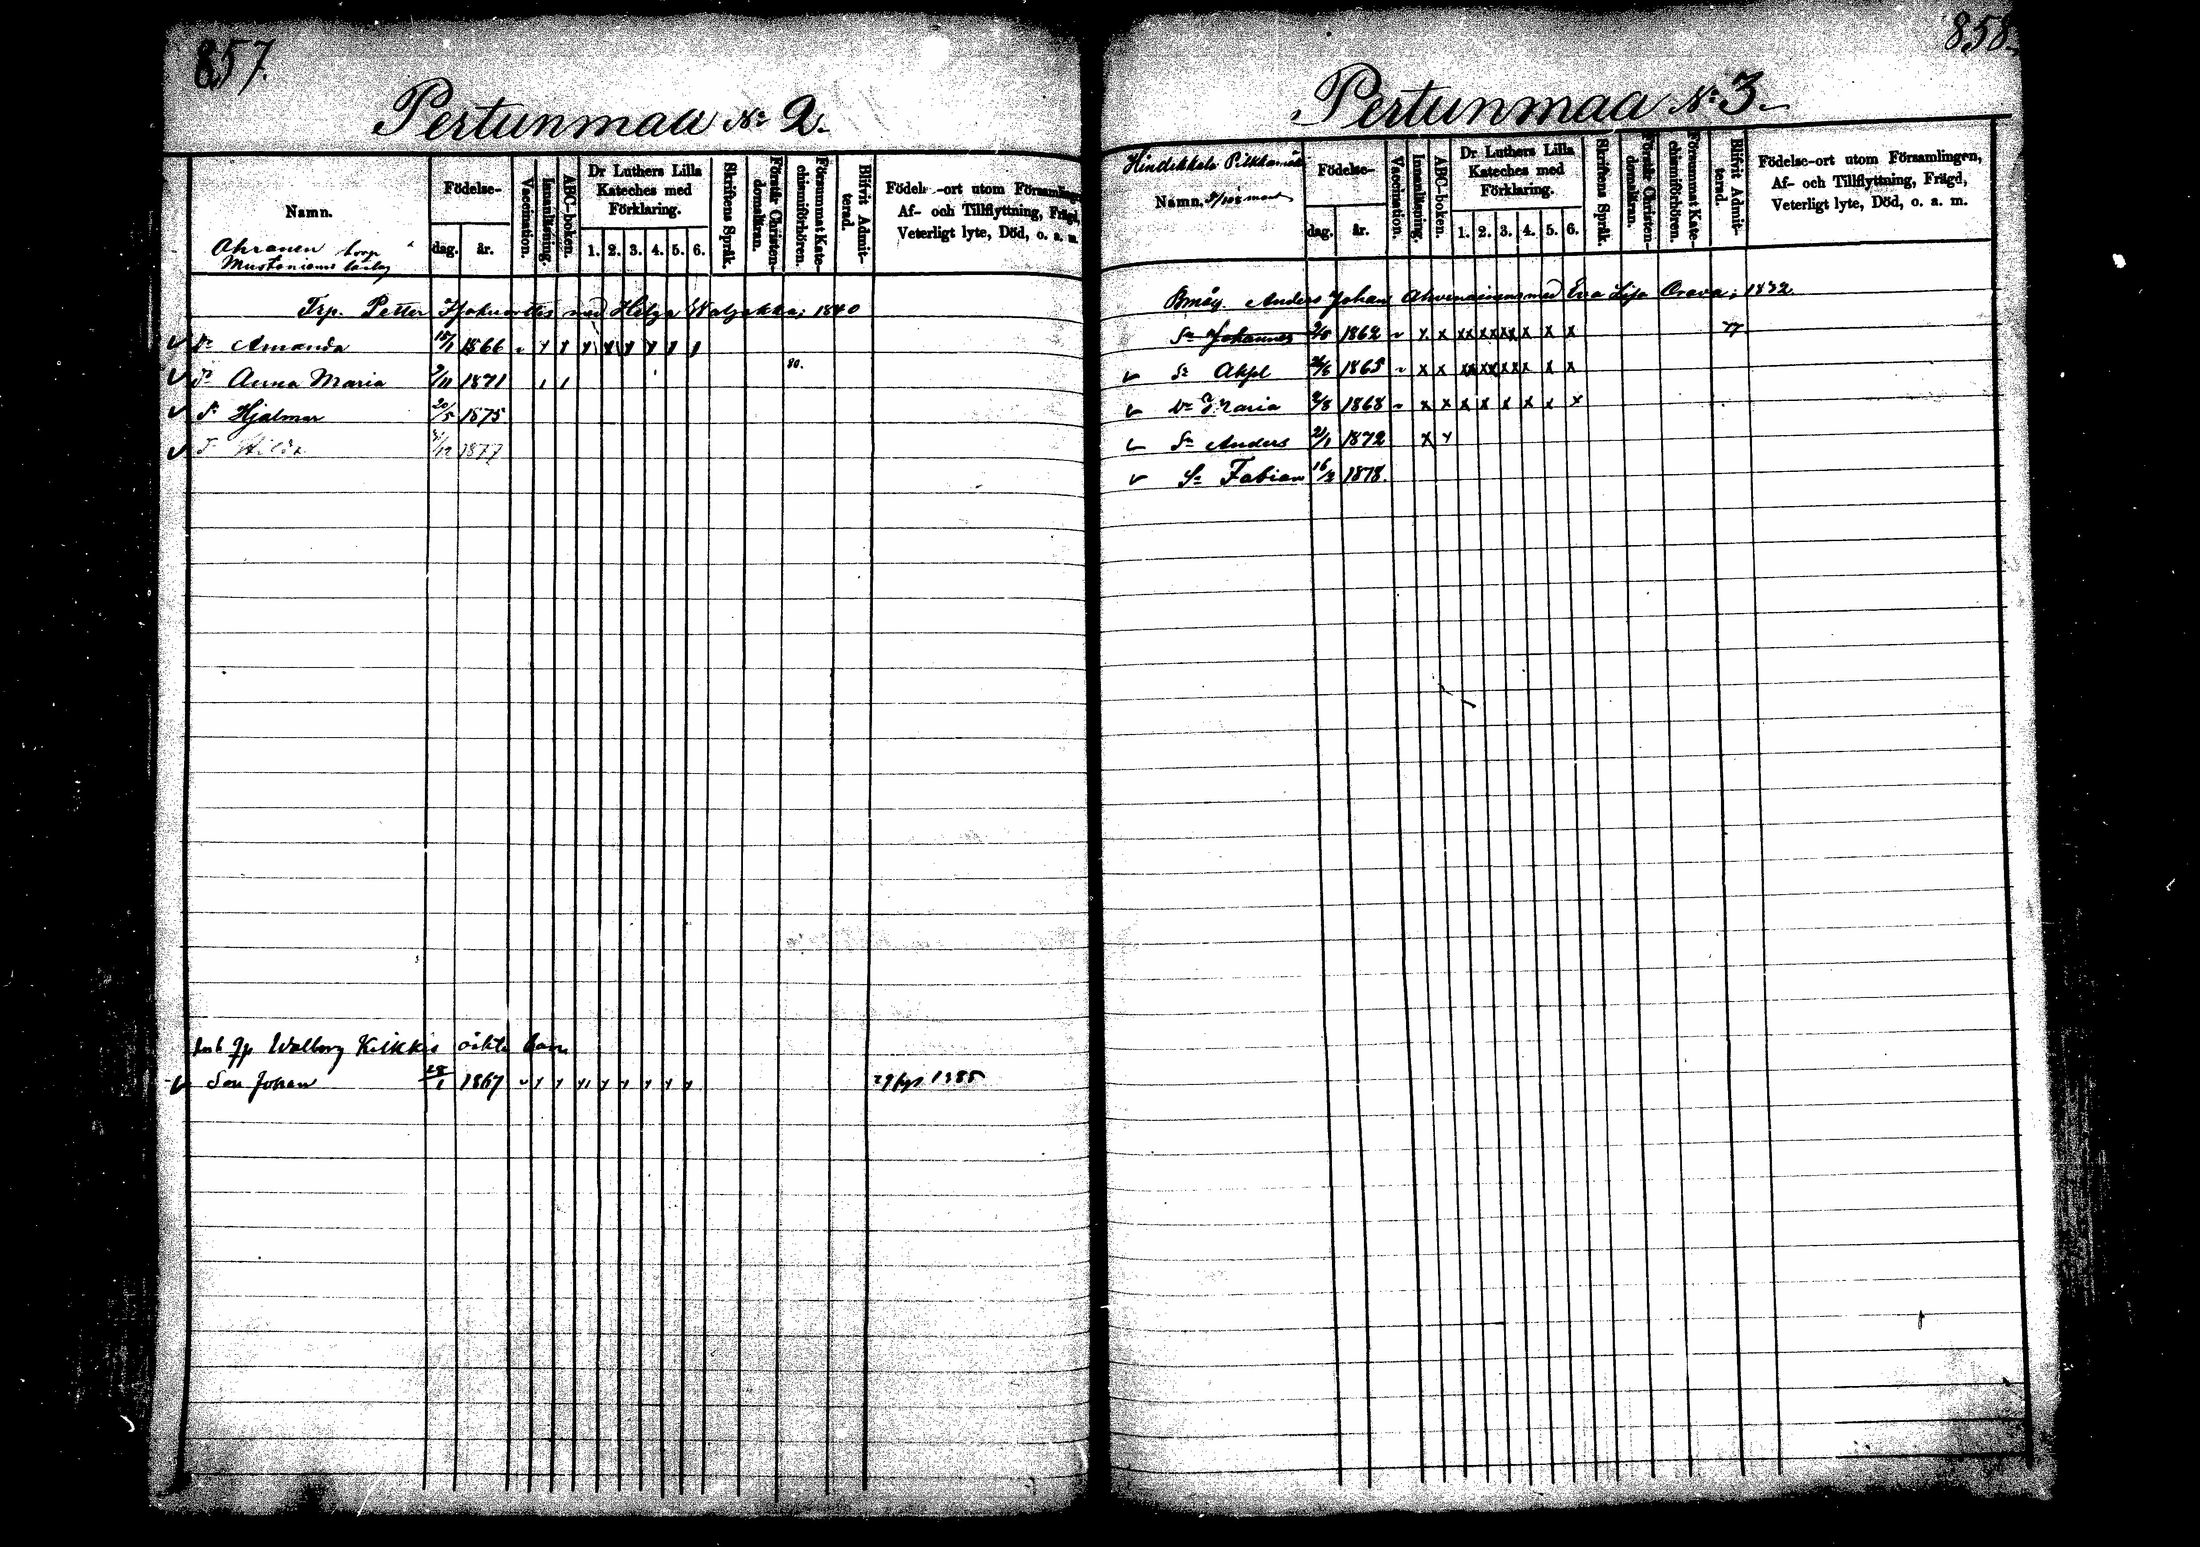 857.
Pertunmaa No 2.
Namn.
Födelse-
dag. år.
Vaccination.
Innanläsning.
ABC-boken.
Dr Luthers Lilla Kateches med Förklaring.
1. 2. 3. 4. 5. 6.
Skriftens Språk.
Förstår Christendomsläran.
Försummat Katechismiförhören.
Blifvit Admitterad.
Födelse-ort utom Församlingen,
Af- och Tillflyttning, Frägd,
Veterligt lyte, Död, o. a. m.
Ahranen torp
Trp. Petter med Helga 1840
Dr Amanda 15/1 1866
Dr Anna Maria 2/11 1871 80.
S. Hjalmar 20/5 1875
D. Hilda 1877
Walborg Kikkis
Son Johan 28/1 1867
858.
Pertunmaa No 3.
Namn.
Födelse-
dag. år.
Vaccination.
Innanläsning.
ABC-boken.
Dr Luthers Lilla Kateches med Förklaring.
1. 2. 3. 4. 5. 6.
Skriftens Språk.
Förstår Christendomsläran.
Försummat Katechismiförhören.
Blifvit Admitterad.
Födelse-ort utom Församlingen,
Af- och Tillflyttning, Frägd,
Veterligt lyte, Död, o. a. m.
Anders Johan Ahvenainens med Eva Lisa Orava; 1832
Sn Johannes 2/8 1862 77
Sn 1865
Dr Maria 2/8 1868
Sn Anders 2/1 1872
Sn Fabian 16/2 1878.